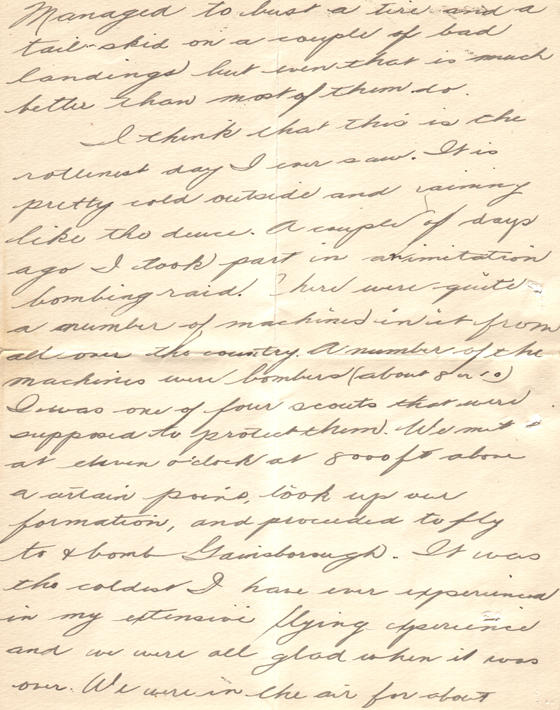 Managed to bust a tire and a
tail-skid on a couple of bad
landings but even that is much
better than most of them do.
I think that this is the
rottenest day I ever saw. It is
pretty cold outside and raining
like the deuce. A couple of days
ago I took part in an imitation
bombing raid. There were quite
a number of machines in it from
all over the country. A number of the
machines were bombers (about 8 or 10)
I was one of four scouts that were
supposed to protect them. We met
at eleven o'clock at 8000 ft above
a certain point, took up our
formation, and proceeded to fly
to & bomb Gainsborough. It was
the coldest I have ever experienced
in my extensive flying experience
and we were all glad when it was
over. We were in the air for about